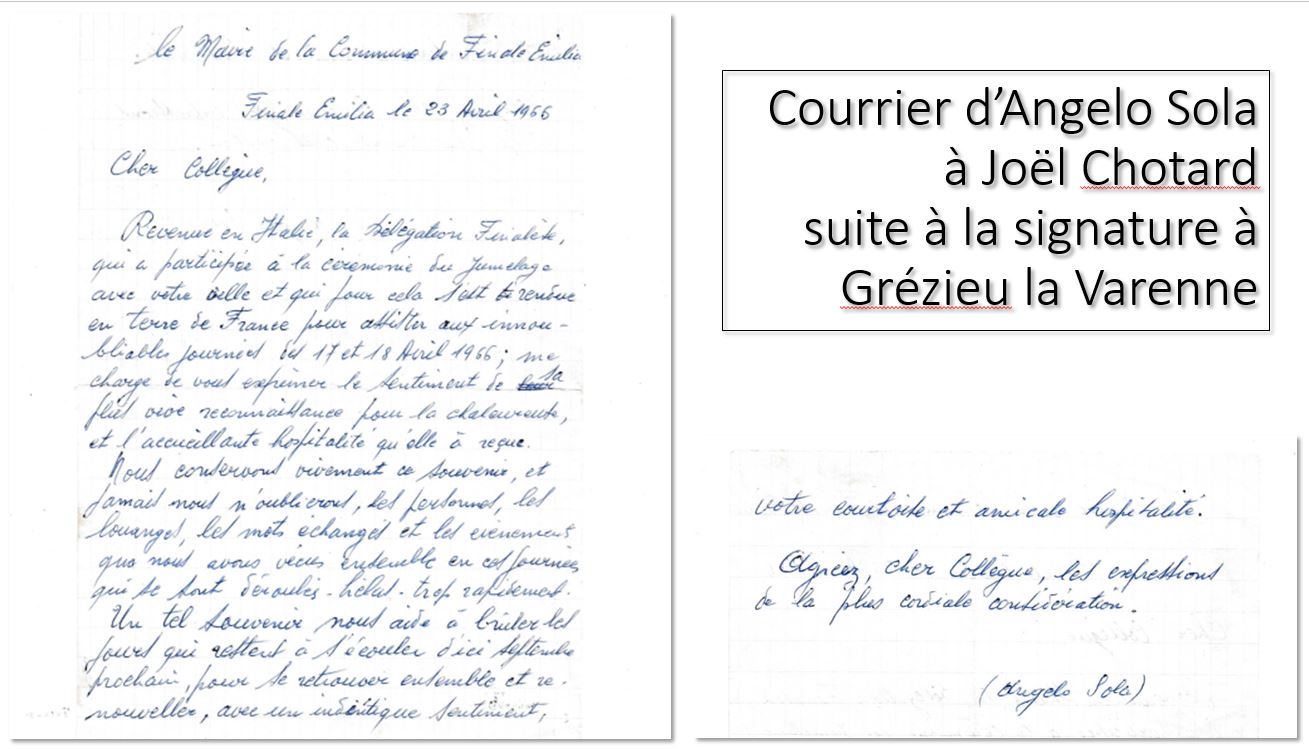 le Maire de la Commune de Finale Emilia
Finale Emilia le 23 Avril 1966
Cher Collègue,
Revenue en Italie, la délégation Finalése,
qui a participée à la cérémonie du Jumelage
avec votre ville et qui pour cela s'est rendue
en terre de France pour assister aux innou-
bliables journées des 17 et 18 Avril 1966 ; me
charge de vous exprimer le sentiment de sa
plus vive reconnaissance pour la chaleureuse,
et l'accueillante hospitalité qu'elle à reçue.
Nous conservons vivement ce souvenir, et
jamais nous n'oublierons, les personnes, les
louanges, les mots échangés et les événements
que nous avons vécus ensemble en ces journées
qui se sont déroulés - hélas - trop rapidement.
Un tel souvenir nous aide à brûler les
jours qui restent à s'écouler d'ici septembre
prochain, pour se retrouver ensemble et re-
nouveller, avec un indentique sentiment,
Courrier d'Angelo Sola
à Joël Chotard
suite à la signature à
Grézieu la Varenne
votre courtoise et amicale hospitalité.
Agréez, cher Collègue, les expressions
de la plus cordiale considération.
(Angelo Sola)